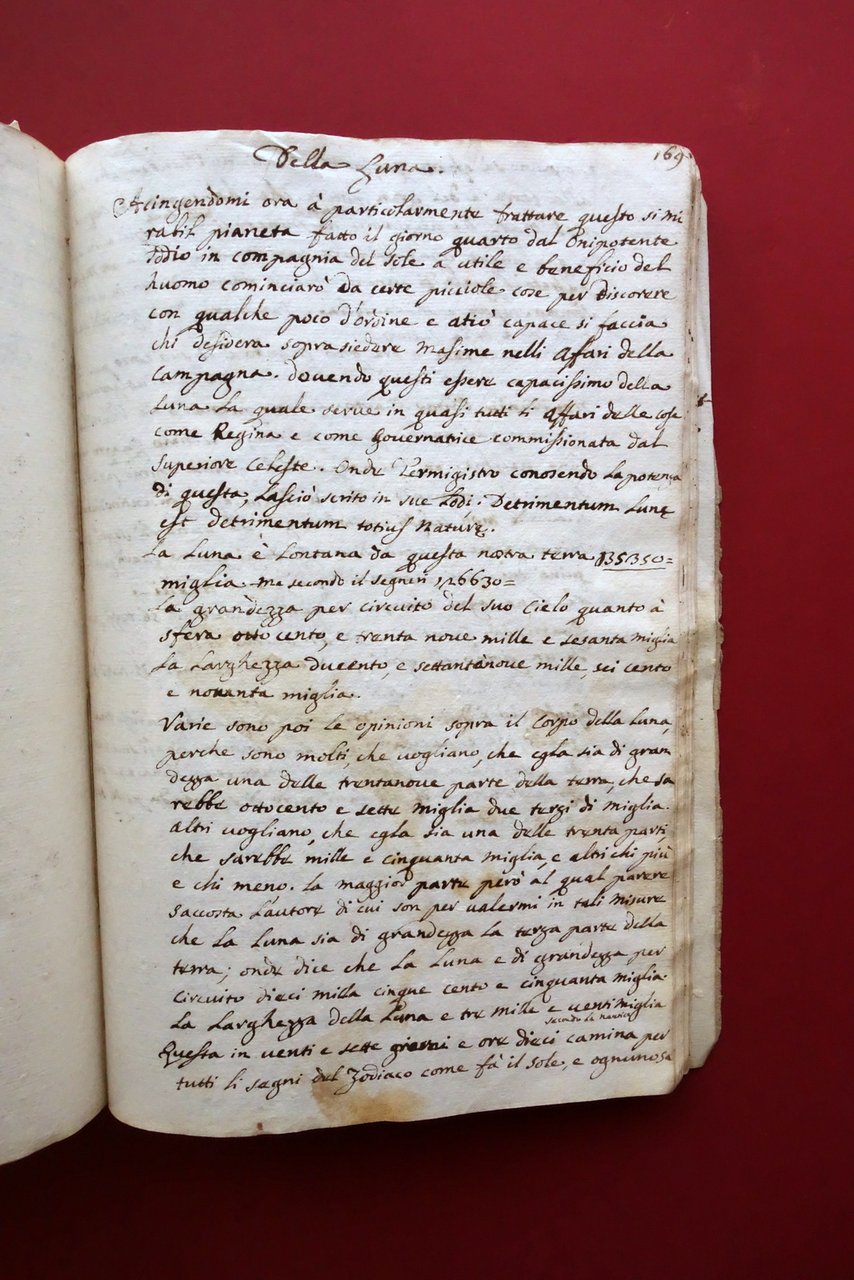 169
Della Luna.
Acingendomi ora à particolarmente trattare questo si mi
rabil pianeta fatto il giorno quarto dal Onipotente
Iddio in compagnia del sole a utile e beneficio del
huomo cominciarò da certe picciole cose per Discorere
con qualche poco d'ordine e atiò capace si faccia
chi desidera sopra siedere masime nelli affari della
Campagna. Dovendo questi essere capacissimo della
Luna La quale serve in quasi tutti li affari delle cose
come Regina e come Governatice commissionata dal
Superiore Celeste. Onde Termigistro conosendo la potenza
di questa, Lasciò scrito in sue Lodi. Detrimentum Lunę
est detrimentum totius Naturę.
La Luna è Lontana da questa nostra terra 135350=
miglia ma secondo il segneri 126630=
La grandezza per circuito del suo Cielo quanto à
sfera otto cento, e trenta noue mille e sesanta miglia
La Larghezza ducento, e settantanoue mille, sei cento
e nouanta miglia.
Varie sono poi le opinioni sopra il Corpo della Luna,
perche sono molti, che uogliano, che egla sia di gran
dezza una delle trentanoue parte della terra, che sa
rebbe ottocento e sette miglia due terzi di miglia.
altri uogliano, che egla sia una delle trenta parti
che sarebbe mille e cinquanta miglia, e altri chi più
e chi meno. La maggior parte però al qual parere
saccosta L'autore di cui son per ualermi in tali misure
che La Luna sia di grandezza La terza parte della
terra; onde dice che La Luna e di grandezza per
circuito dieci milla cinque cento e cinquanta miglia.
La Larghezza della Luna e tre mille e uenti miglia
secondo la
Questa in uenti e sette giorni e ore dieci camina per
tutti li segni del Zodiaco come fà il Sole, e ognuno sa